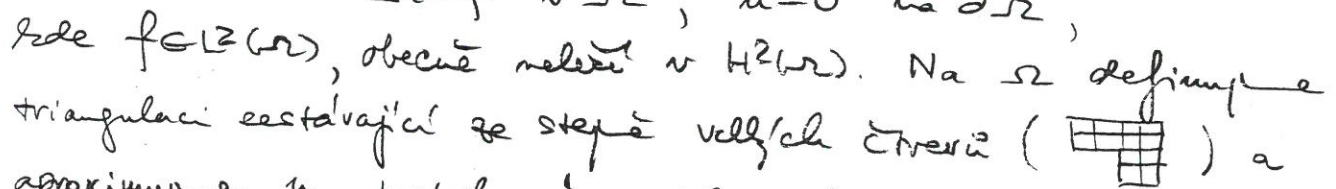 v Ω, u=0 na ∂Ω,
kde f∈L²(Ω), obecně neleží v H²(Ω). Na Ω definujme
triangulaci sestávající ze stejně velkých čtverců ( ) a